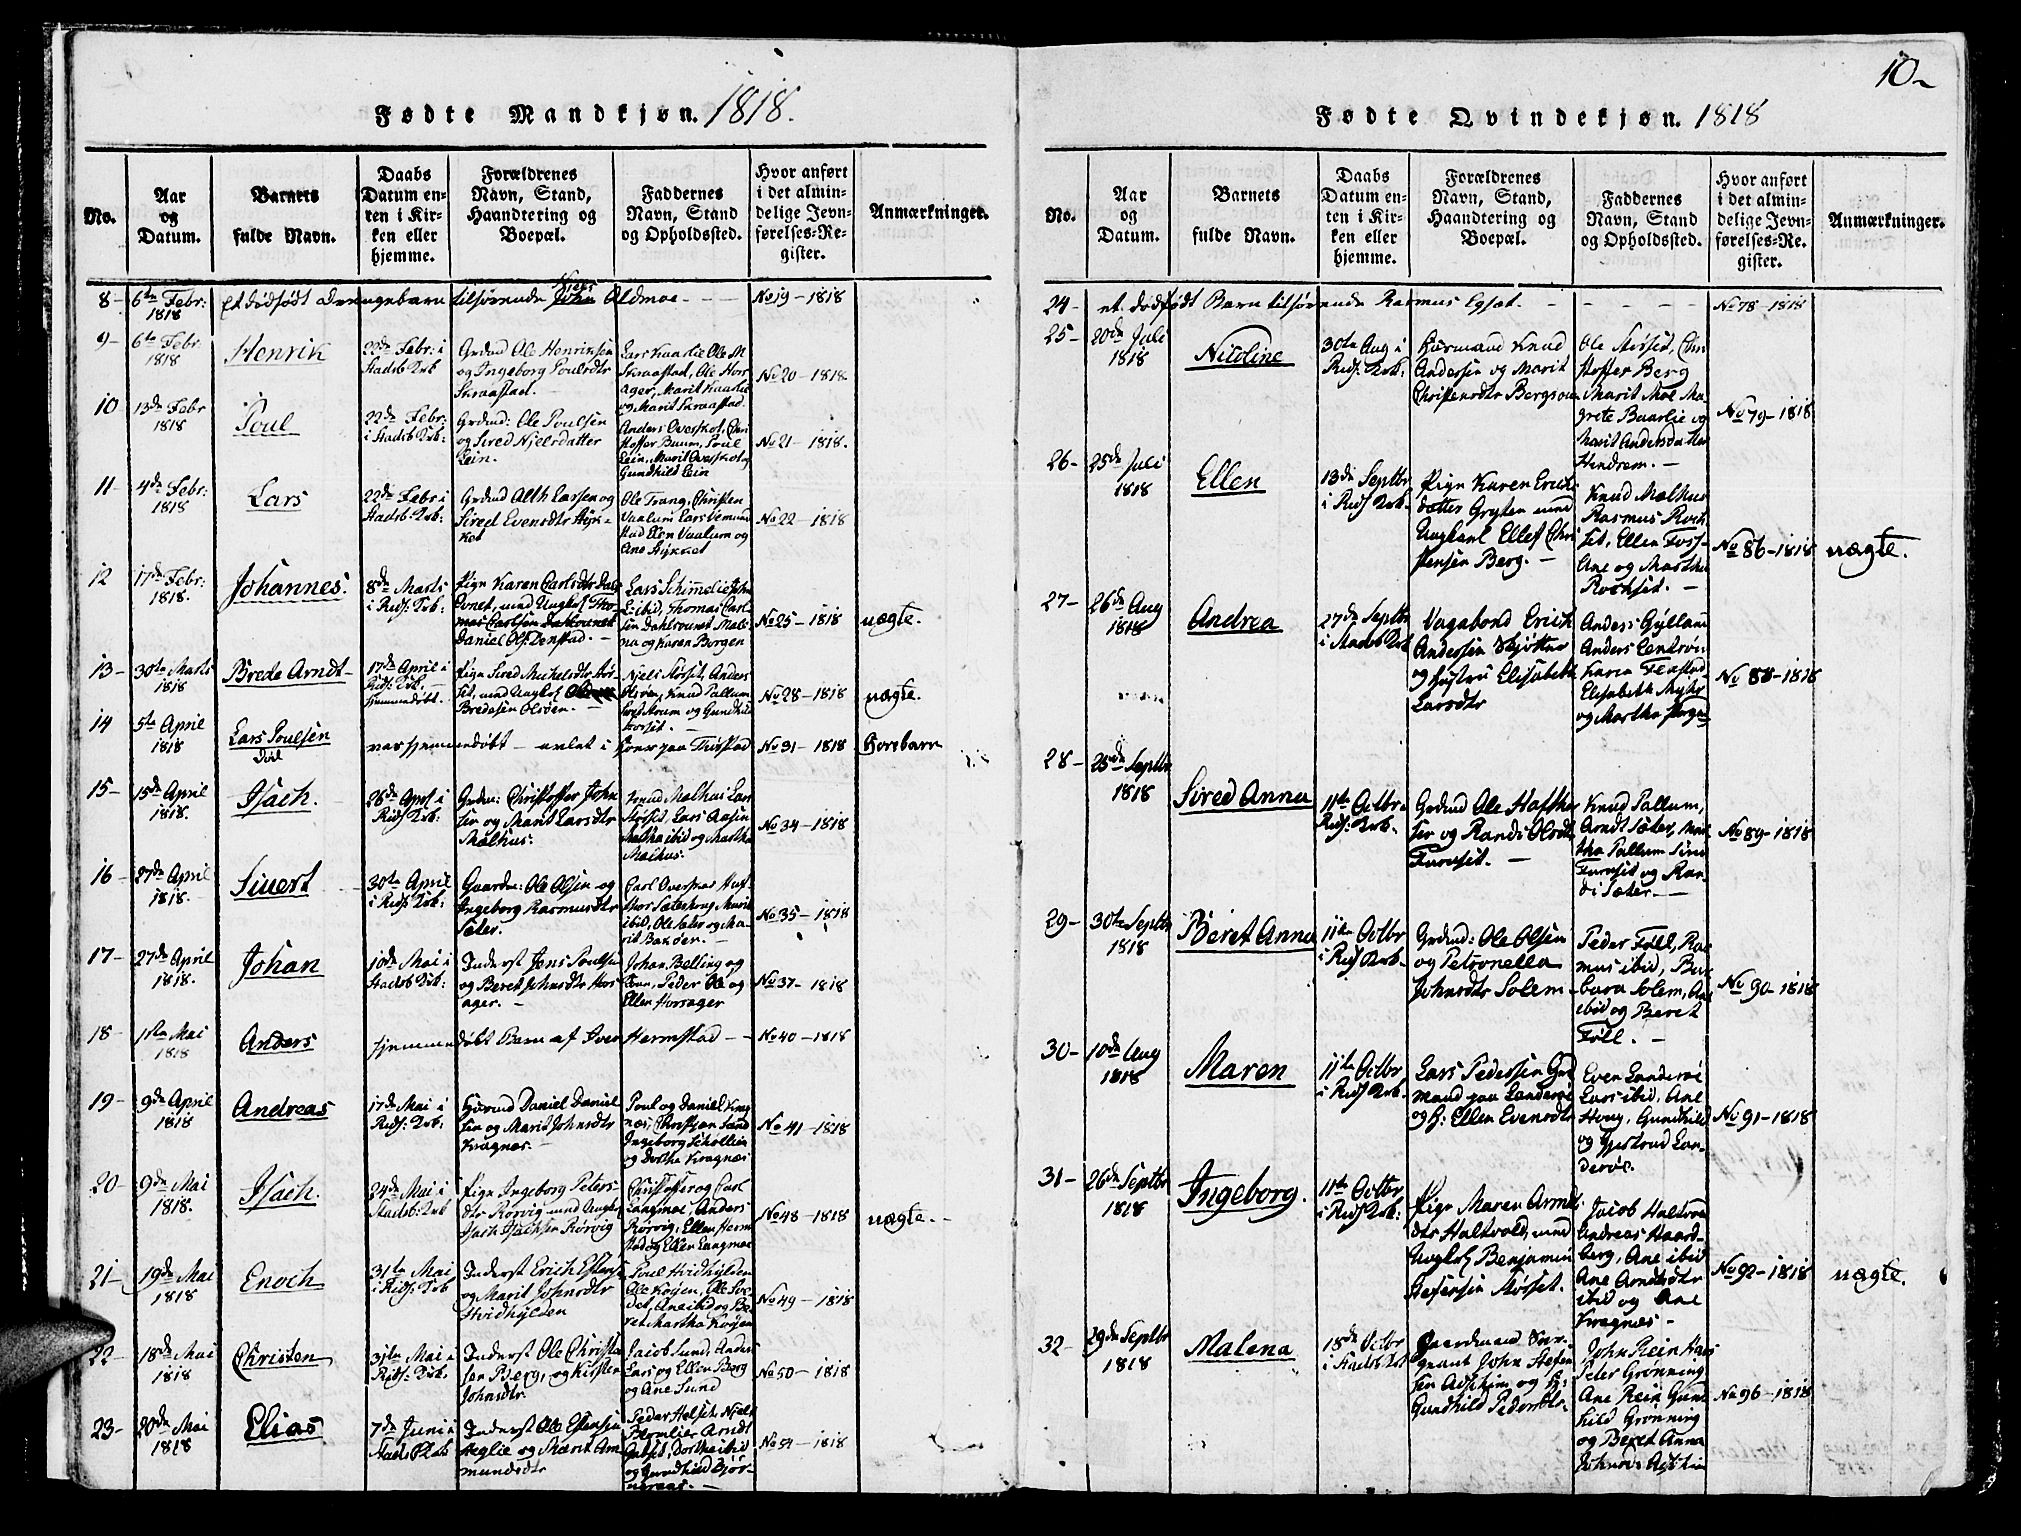 Fødte Mandkjøn. 1818.
No.
Aar
og
Datum.
Barnets
fulde Navn.
Daabs
Datum en-
ten i Kir-
ken eller
hjemme.
Forældrenes
Navn, Stand,
Haandtering og
Boepæl.
Faddernes
Navn, Stand
og Opholdssted.
Hvor anført
i det almin-
delige Jevn-
førelses-Re-
gister.
Anmærkninger.
8- 6te Febr: 1818 et dødfødt Drengebarn tilhørende John Aldmoe - - - No 19-1818
9- 6te Febr. 1818
Henrik
22de Febr: i
Stadsb. Krk:
Grdmd Ole Henriksen
og Ingeborg Poulsdtr
Skraastad.
Lars Kaarlie Ole M
Skraastad, Ole Hors
ager, Marit Kaarlie
og Marit Skraastad.
No 20-1818
10 13de Febr 1818
Poul
22de Febr:
i Stadsb. Krk:
Grdmd: Ole Poulsen
og Sired Njelsdatter
Lein.
Anders Overskot, Chri
stoffer Buum, Poul
Lein, Marit Overskot og
Gundhild Lein
No 21-1818.
11- 4de Febr: 1818
Lars
22de Febr: i
Stadsb. Krk:
Grdmd Alth Larsen og
Sired Evensdtr
Ole Trang, Christen
Vaalum
Vaalum og
Ane
No 22-1818
12 17de Febr: 1818.
Johannes.
8de Marts
i Riss: Krk:
Pige Karen Carlsdtr
med Ungkl Tho
mas Carlsen
Daniel Olss: Denstad. -
Lars Schimmelie John
ibid, Thomas Carl
sen
og Karen Borgen
No 25-1818
uægte.
13- 30te Marts 1818
Brede Arndt-
17de April i
Riss: Krk.
hjemmedøbt.
Pige Sired Michelsdtr
set, med Ungkl
Bredesen Olsøen.
Njels Storset, Anders
Olsøen, Knud Pallum
og Gundhild
Storset.
No 28-1818
uægte.
14 5te April 1818
Lars Poulsen
Død
var hjemmedøbt - avlet i paa Thirstad
No 31-1818
Horebarn
15- 15de April 1818.
Isach.
26de April i
Riss: Krk:
Grdmd: Christoffer John
sen og Marit Larsdtr
Mælhus.
Knud Mælhus Lars
Storset, Lars Aasen
Martha ibid og Martha
Mælhus.
No 34-1818
16- 27de April 1818.
Siuert
30te April
i Riss Krk:
Gaardm: Ole Olsen og
Ingeborg Rasmusdtr
Sæter.
Carl Overnæs
ibid, Ole Sæter og Ma
rit Bakøen.
No 35-1818
17- 27de April 1818.
Johan
10de Mai i
Stadsb. Krk:
Inderst Jens Poulsen
og Beret Johnsdtr Hors
ager.
Johan Belling og
Peder Ole og
Ellen Horsager
No 37-1818
18- 1ste Mai 1818
Anders
hjemmedøbt Barn af Iver Hermstad - -
No 40-1818
19- 9de April 1818
Andreas
17de Mai i
Riss: Krk:
Huusmd Daniel Daniel
sen og Marit Johnsdtr
Kragnæs.
Poul og Daniel Krag
næs, Christjan Sand
Ingeborg Schollien
og Dorthe Kragnæs
No 41-1818
20- 9de Mai 1818.
Isach.
24de Mai i
Stadsb. Krk
Pige Ingeborg Peters-
dtr Rørvig med Ungkl
Isach Isachsen Rørvig
Christoffer og Carl
Langmoe, Anders
Rørvig, Ellen Herm
stad og Ellen Langmoe
No 48-1818
uægte. -
21- 19de Mai 1818
Enoch
31te Mai
i Riss: Krk
Inderst Erich Estens
og Marit Johnsdtr
Hvidhylden
Poul Hvidhylden
Ole Koyen, Ole
Ane ibid og Be
ret Martha Koyen
No 49-1818
22- 18de Mai 1818
Christen
31te Mai i
Riss: Krk.
Inderst Ole Christen
sen Berg, og Kirsten
Johnsdtr
Jacob Sund, Anders
Lars og Ellen Berg
og Ane Sund
No 50-1818
23- 20de Mai 1818
Elias
7de Juni i
Stads
Inderst Ole Estensen
og Marit Am
mundsdtr
Peder Njels
Arndt
Dorthe ibid
og Gundhild Bjør
No 51-1818
10-
Fødte Qvindekjøn. 1818
No.
Aar
og
Datum.
Barnets
fulde Navn.
Daabs
Datum en-
ten i Kir-
ken eller
hjemme.
Forældrenes
Navn, Stand,
Haandtering og
Boepæl.
Faddernes
Navn, Stand
og Opholdssted.
Hvor anført
i det almin-
delige Jevn-
førelses-Re-
gister.
Anmærkninger.
24- et dødfødt Barn tilhørende Rasmus Egset. - - - - No 78-1818
25- 20de Juli 1818
Nicoline
30te Aug i
Riss: Krk:
Huusmand Knud
Andersen og Marit
Christensdtr Bergsaun
Ole Storset, Chri
stoffer Berg
Marit Moe Ma
grete Baarlie og
Marit Andersdatter
Hindrem. -
No 79-1818
26- 25de Juli 1818
Ellen
13de Septbr
i Riss Krk.
Pige Karen Erichs
datter Gryten med
Ungkarl Ellef Chri
stensen Berg. -
Knud Mælhus
Rasmus Rock
set, Ellen Foss-
Ane og Martha
Rockset. -
No 86-1818
uægte.
27- 26de Aug 1818
Andrea
27de Septbr
i Stadsb. Krk
Vagabond Erich
Andersen Skjøtten
og Hustru Elisabeth
Larsdtr
Anders Gyllam
Anders
Karen Flastad
Elisabeth Myhr
og Martha
No 88-1818
28- 28de Septbr 1818
Sired Anna
11te Octbr.
Riss: Krk.
Grdmd Ole Hafthor
sen og Randi Olsdtr
Furuset. -
Knud Pallum,
Arndt Sæter, Mar
tha Pallum Sired
Furuset og Ran
di Sæter. -
No 89-1818
29- 30te Septbr 1818
Beret Anna
11te Octbr
i Riss Krk.
Grdmd: Ole Olsen
og Petronella
Johnsdtr Solem -
Peder Føll, Ras
mus ibid, Bar
bara Solem, Ane
ibid og Beret
Føll. -
No 90-1818
30- 10de Aug 1818
Maren
11te Octbr
i Riss Krk.
Lars Pedersen Grd
mand paa Landerøe
og H: Ellen Evensdtr
Even Landerøe
Lars ibid, Ane
Houg, Gundhild
og Gjertrud Lan-
derøe.
No 91-1818
31- 26de Septbr 1818
Ingeborg.
11te Octbr
i Riss Krk:
Pige Maren Arnt
dtr Haltvold, med
Ungkl Benjamin
Stefensen Storset.
Jacob Haltvold
Andreas Haard-
berg, Ane ibid
Ane Arndtsdtr
ibid og Ane
Kragnæs -
No 92-1818
uægte.
32- 29de Septbr 1818
Malena
18de Octbr
i Stadsb Krk
Gaardmand Ser-
geant John Stefen
sen Askjem og H:
Gundhild Pedersdtr.
John Rein Hans
Peter Grønning
Ane Rein Gund
hild Grønning
og Beret Anna
Johnsdtr Askjem
No 96-1818